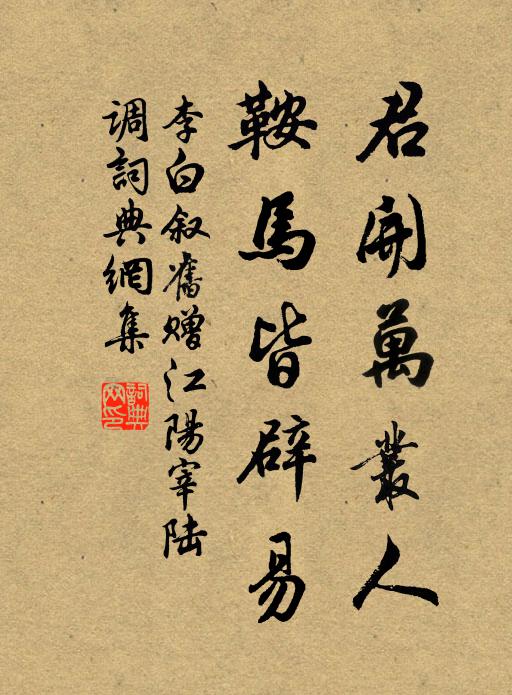 君開萬叢人
鞍馬皆辟易
李白叙舊赠江陽宰陆
调詞典網集
詞典
网印